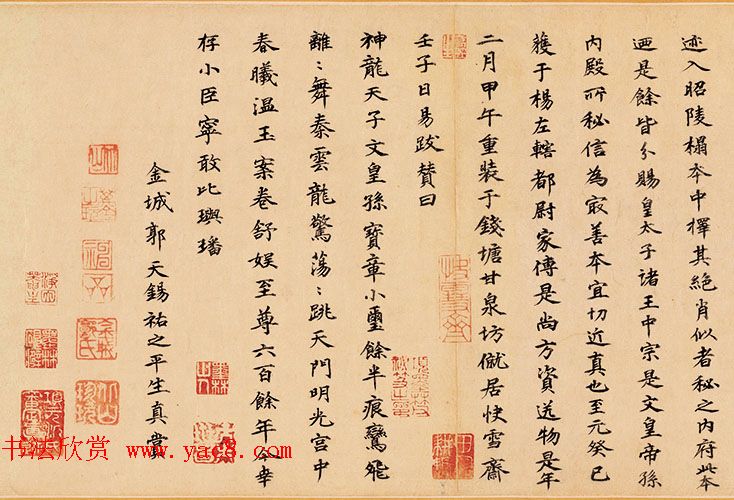 迹入昭陵榻本中擇其絕肖似者秘之内府此本
迺是餘皆分賜皇太子諸王中宗是文皇帝孫
内殿所秘信為㝡善本宜切近真也至元癸巳
獲于楊左轄都尉家傳是尚方資送物是年
二月甲午重装于錢塘甘泉坊僦居快雪齋
壬子日易跋賛曰
神龍天子文皇孫寶章小璽餘半痕鸞飛
離〻舞秦雲龍驚蕩〻跳天門明光宫中
春曦温玉案卷舒娱至尊六百餘年今幸
存小臣寧敢比璵璠
金城郭天錫祐之平生真賞
书法欣赏 www.yac8.com